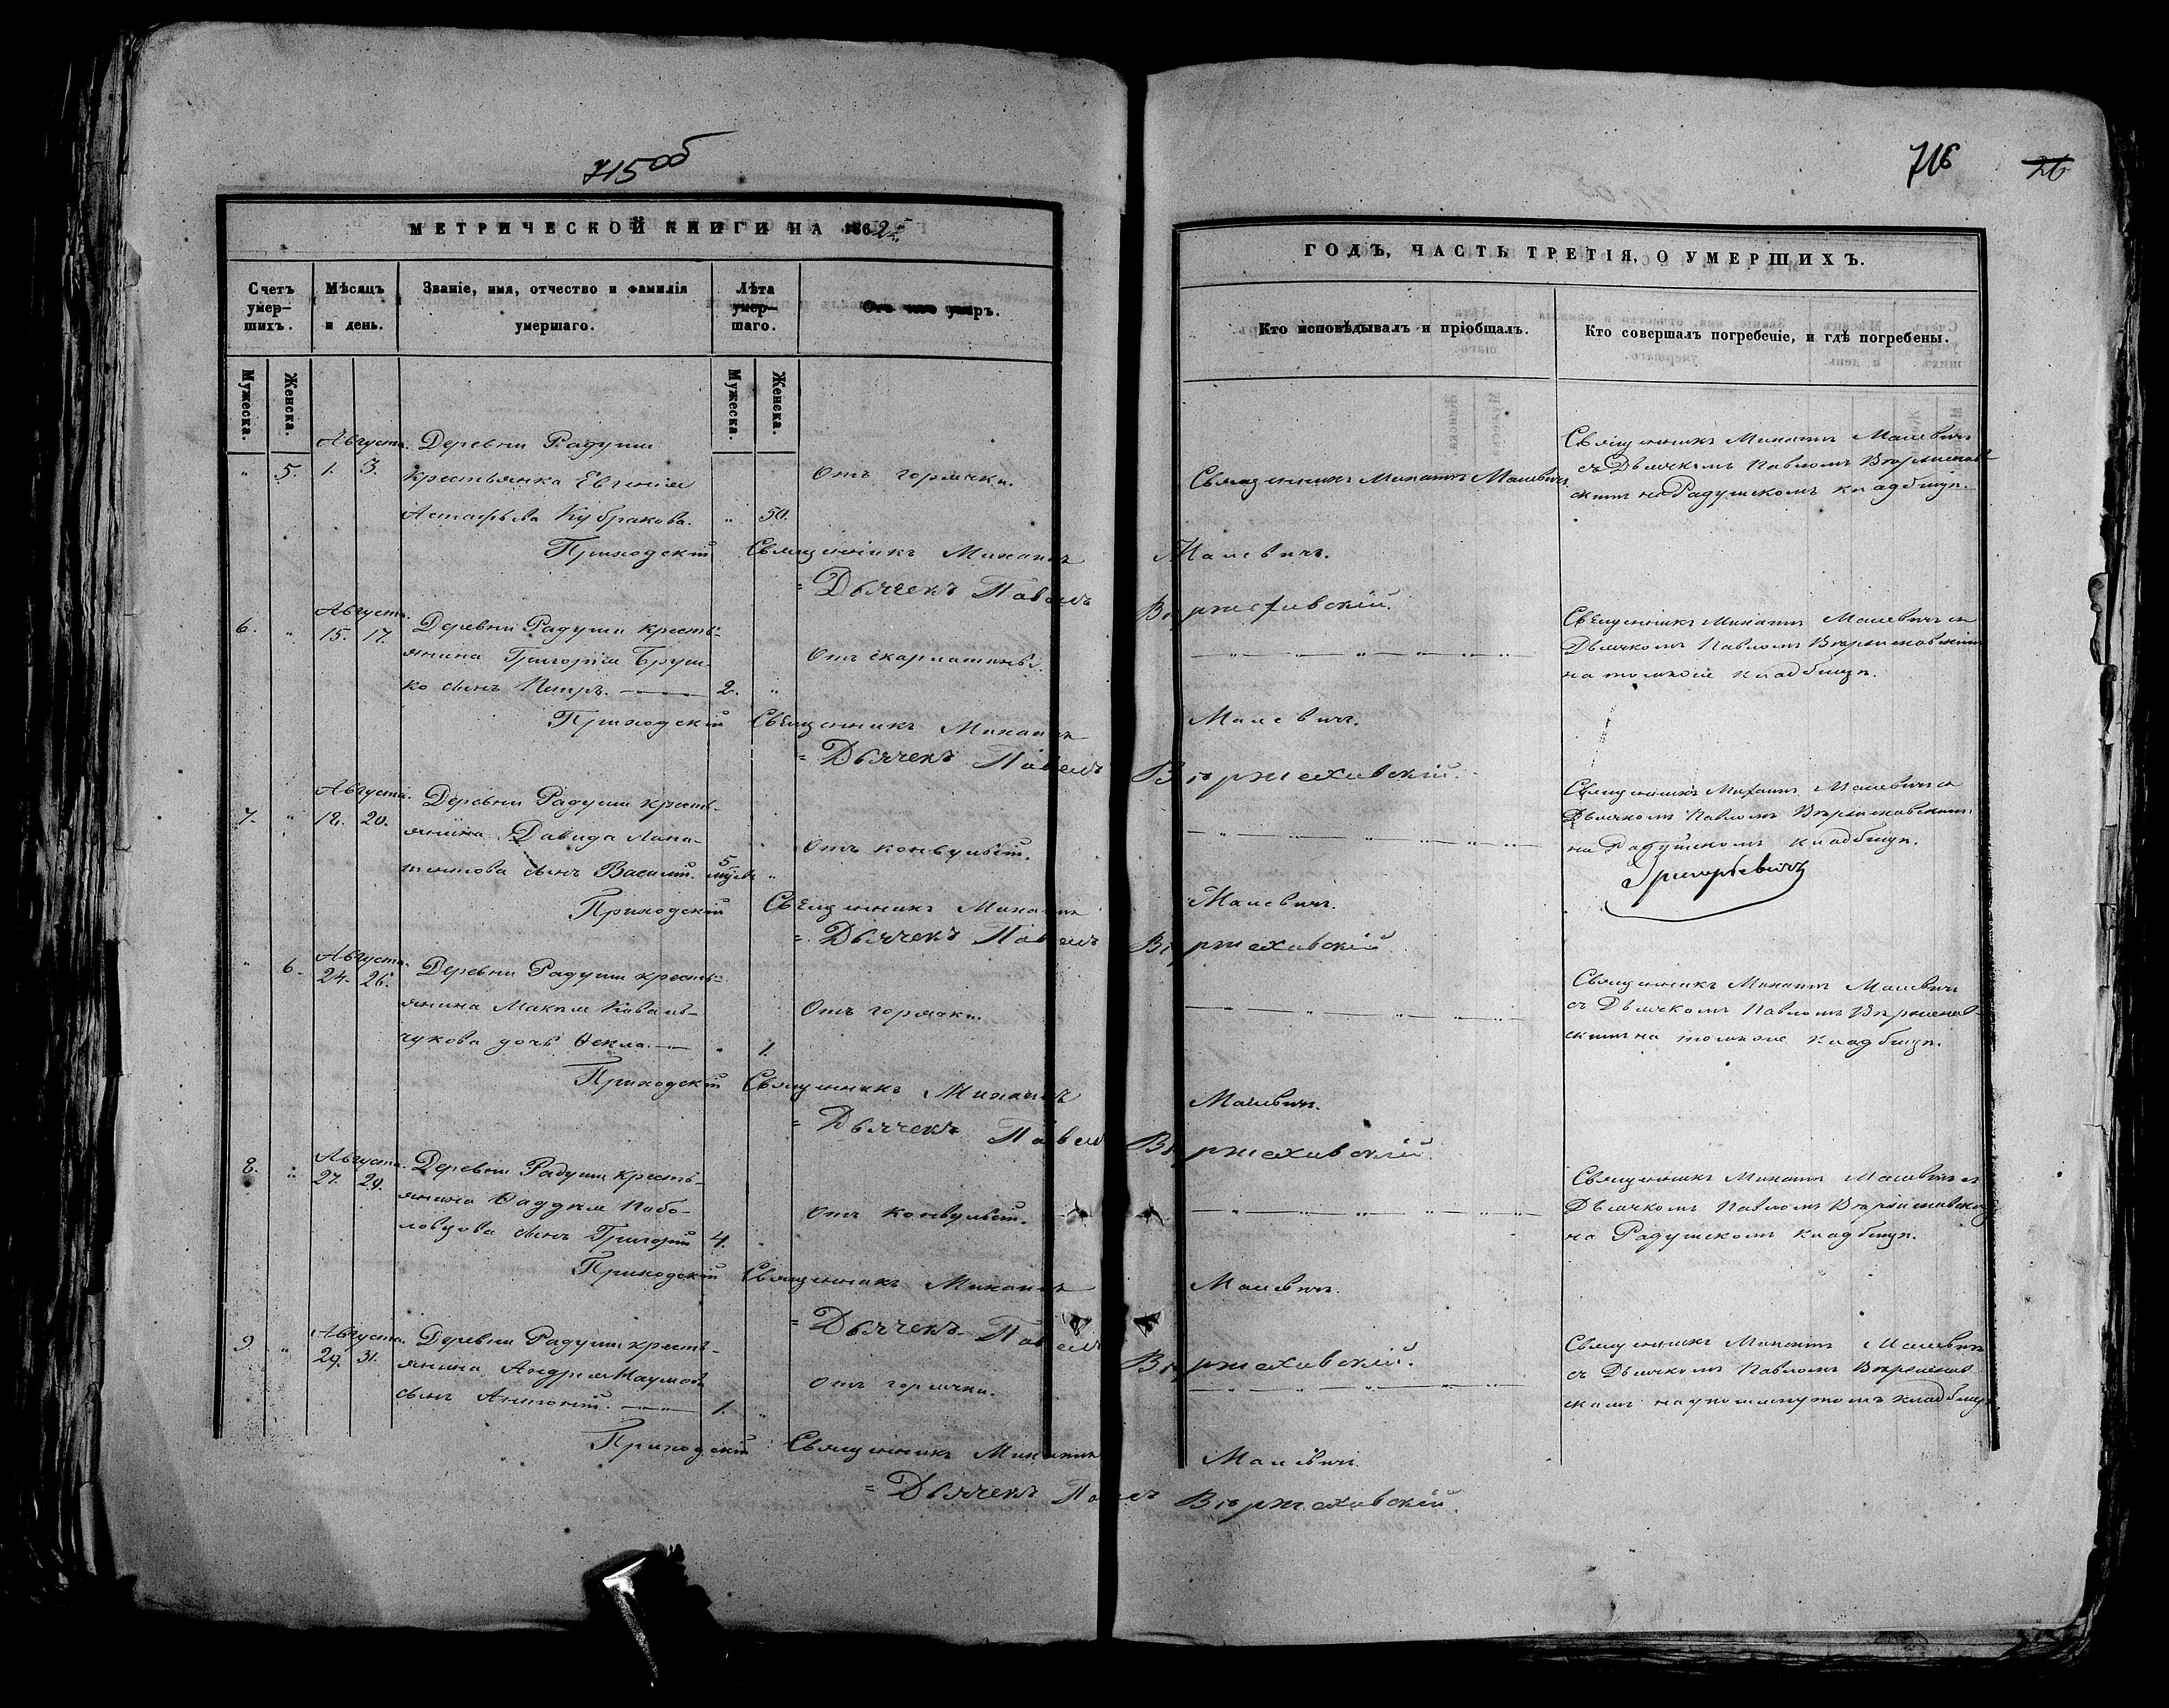 715об
МЕТРИЧЕСКОЙ КНИГИ НА 1862й
Счетъ умер-шихъ.
Мѣсяцъ и день.
Званіе, имя, отчество и фамилія умершаго.
Лѣта умер-шаго.
Отъ чего умеръ.
Мужеска.
Женска.
Мужеска.
Женска.
Августа. Деревни Радуши
" 5. 1. 3. Крестьянка Евгенія Отъ горячки.
Астафьева Кубракова. " 50.
Приходскій Священникъ Михаилъ
= Дьячекъ Павелъ
Августа.
6. " 15. 17. Деревни Радуши крестьянина Григорія Бруш-
ко сынъ Петръ. 2. " Отъ скарлатины.
Приходскій Священникъ Михаилъ
= Дьячекъ Павелъ
Августа. Деревни Радуши кресть-
7. " 18. 20. янина Давида Лапа-
тентова сынъ Василій. 5 " Отъ конвульсій.
Приходскій Священникъ Михаилъ
= Дьячекъ Павелъ
Августа.
" 6. 24. 26. Деревни Радуши кресть-
янина Отъ горячки.
Коваль-
чукова дочь Ѳекла. " 1.
Приходскій Священникъ Михаилъ
= Дьячекъ Павелъ
8. " Августа. Деревни Радуши кресть-
27. 29. янина Ѳаддея Побо-
ловцова сынъ Григорій 4. Отъ конвульсій.
Приходскій Священникъ Михаилъ
= Дьячекъ Павелъ
9. " Августа. Деревни Радуши кресть-
29. 31. янина Андрея Наумова
сынъ Антоній. 1. " Отъ горячки.
Приходскій Священникъ Михаилъ
= Дьячекъ Павелъ
716
26
ГОДЪ, ЧАСТЬ ТРЕТІЯ, О УМЕРШИХЪ.
Кто исповѣдывалъ и пріобщалъ.
Кто совершалъ погребеніе, и гдѣ погребены.
Священникъ Михаилъ Малевичъ
Священникъ Михаилъ Малевичъ
съ Дьячкомъ Павломъ Вѣржехов-
скимъ на Радушскомъ кладбищѣ.
Малевичъ.
Вѣржеховскій.
Священникъ Михаилъ Малевичъ съ
Дьячкомъ Павломъ Вѣржеховскимъ
на томже кладбищѣ.
Малевичъ.
Вѣржеховскій.
Священникъ Михаилъ Малевичъ съ
Дьячкомъ Павломъ Вѣржеховскимъ
на Радушскомъ кладбищѣ.
Малевичъ.
Вѣржеховскій
Священникъ Михаилъ Малевичъ
съ Дьячкомъ Павломъ Вѣржехов-
скимъ на томже кладбищѣ.
Малевичъ.
Вѣржеховскій.
Священникъ Михаилъ Малевичъ съ
Дьячкомъ Павломъ Вѣржеховскимъ
на Радушскомъ кладбищѣ.
Малевичъ.
Вѣржеховскій.
Священникъ Михаилъ Малевичъ
съ Дьячкомъ Павломъ Вѣржехов-
скимъ на упомянутомъ кладбищѣ
Малевичъ.
Вѣржеховскій.